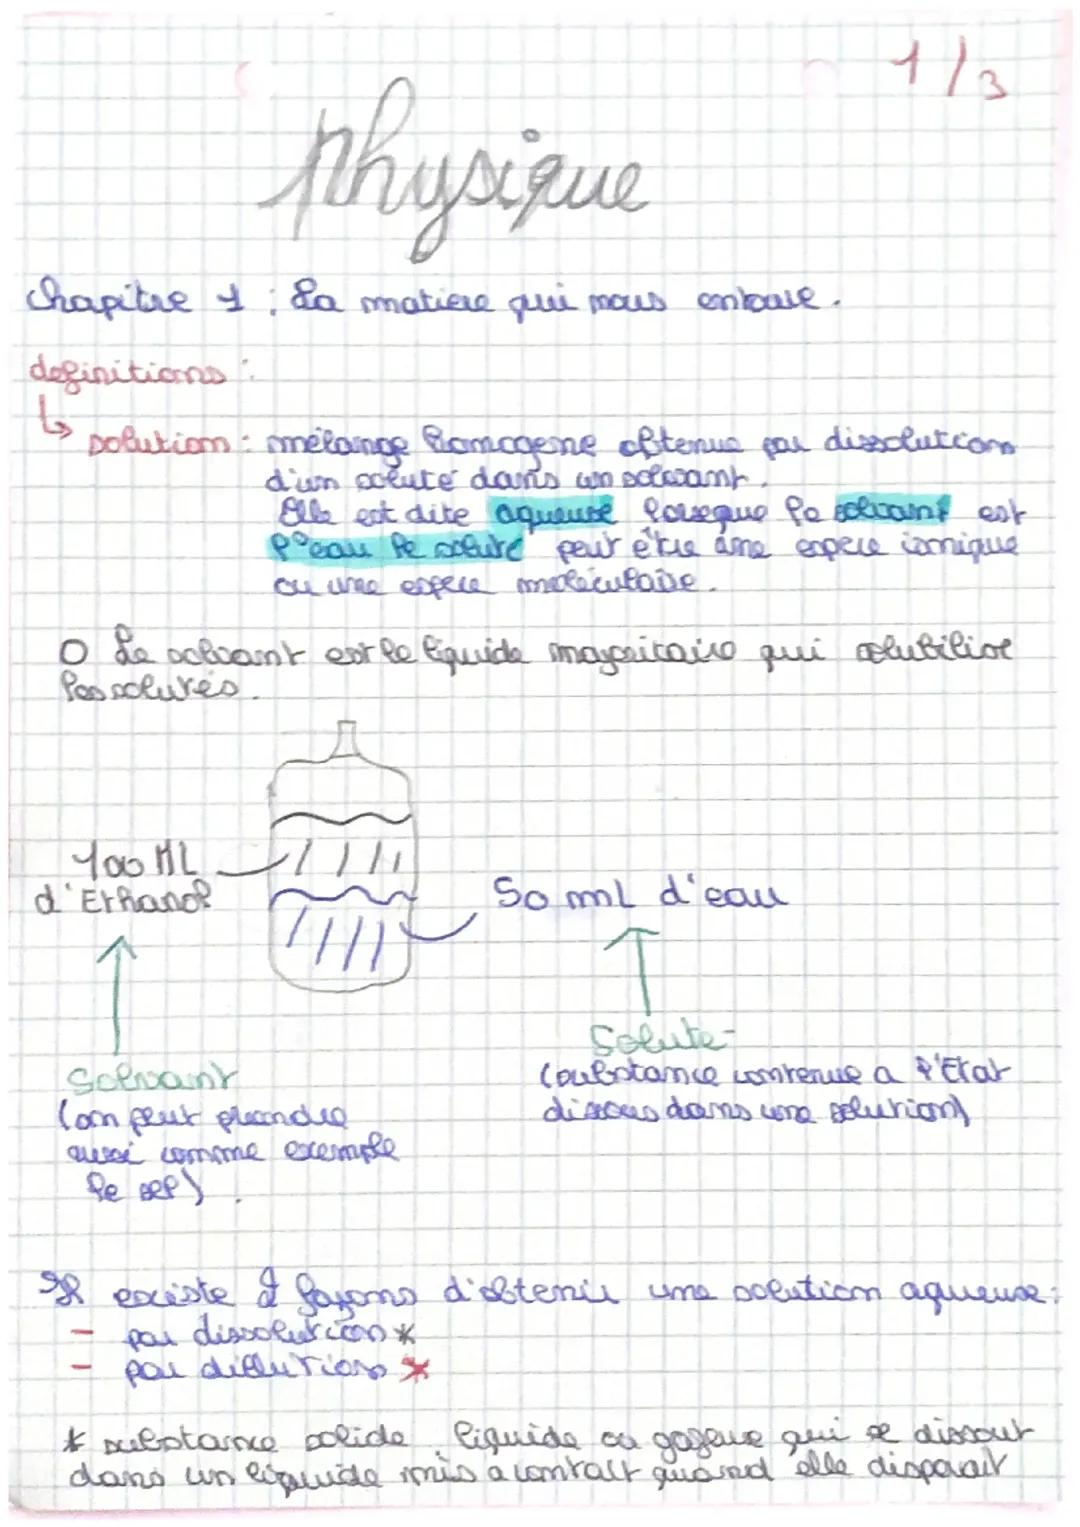 1/3
Physique
Chapitre 1 : La matiere qui nous entoure.
definitions :
↳ solution : mélange homogene obtenue par dissolution
d'un soluté dans un solvant.
Elle est dite aqueuse lorsque le solvant est
l'eau le soluté peut être une espece ionique
ou une espece moléculaire.
O Le solvant est le liquide majoritaire qui solubilise
les solutés.
100 ML
d'Ethanol
50 mL d'eau
Solvant
(on peut prendre
aussi comme exemple
le sel).
Soluté
(substance contenue a l'Etat
dissous dans une solution)
Il existe 2 façons d'obtenir une solution aqueuse :
- par dissolution *
- par dillution *
* substance solide, liquide ou gazeux qui se dissout
dans un liquide mis a contact quand elle disparait